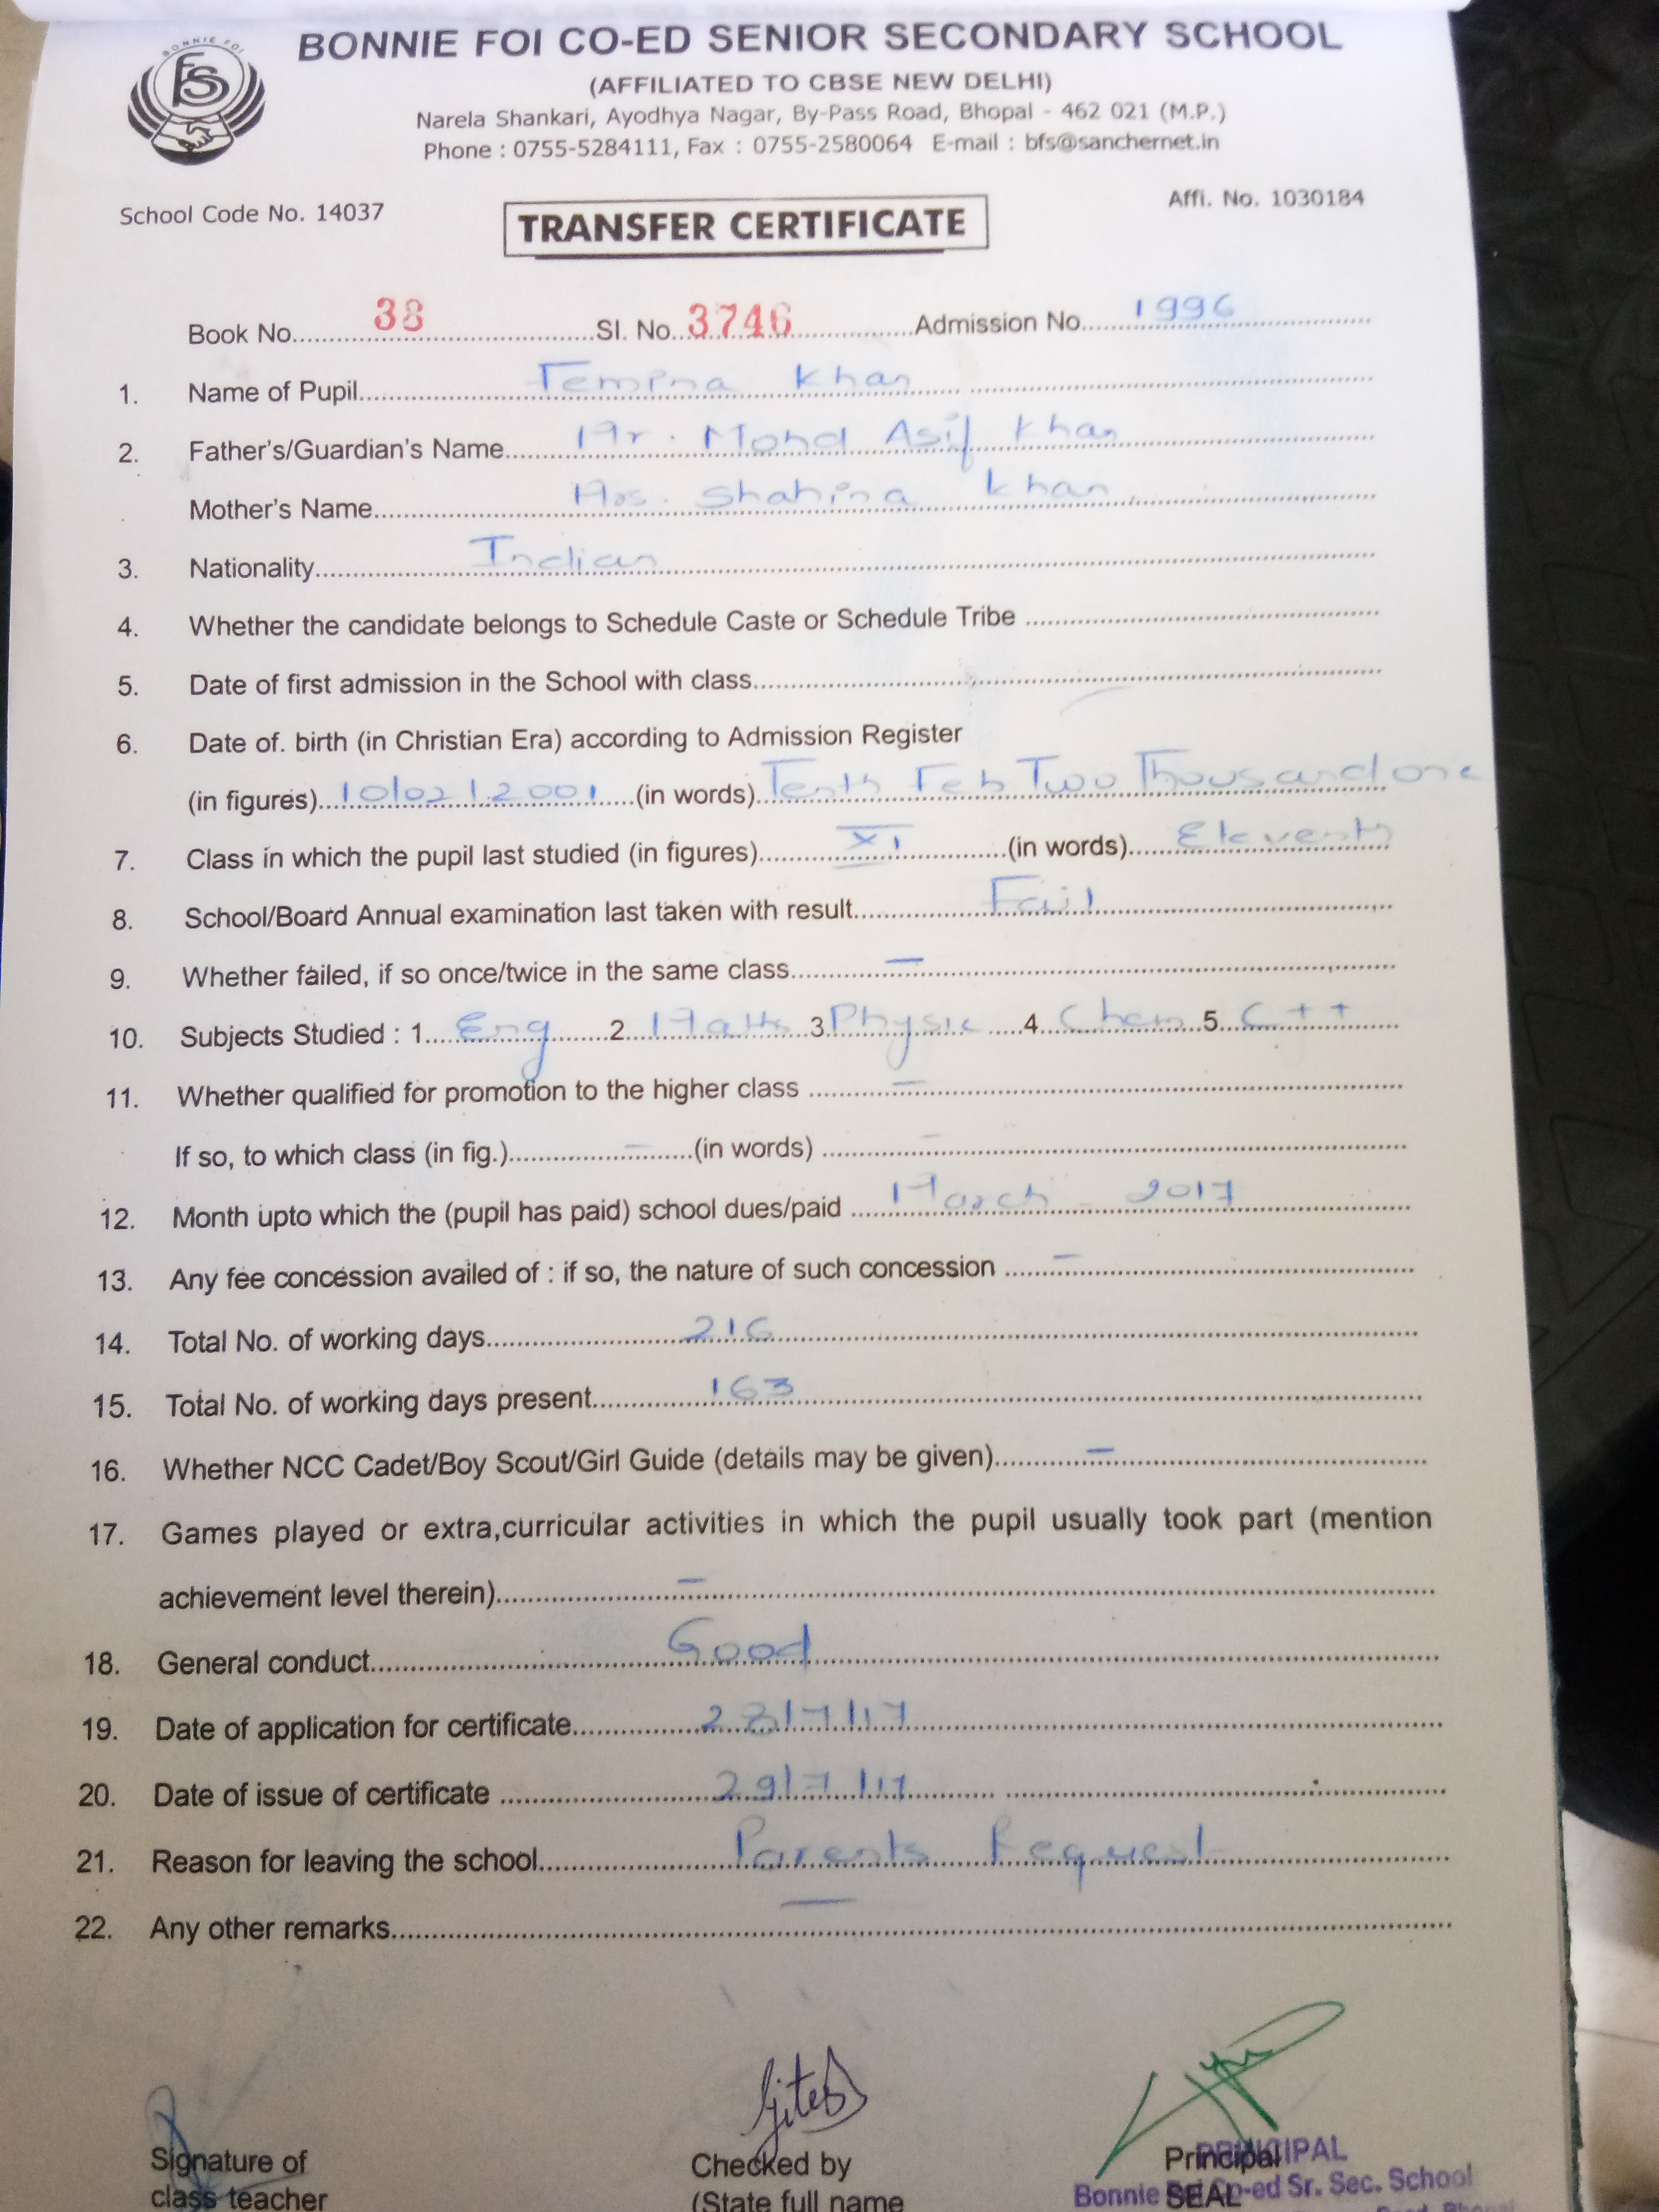 BONNIE FOI
BFS
BONNIE FOI CO-ED SENIOR SECONDARY SCHOOL
(AFFILIATED TO CBSE NEW DELHI)
Narela Shankari, Ayodhya Nagar, By-Pass Road, Bhopal - 462 021 (M.P.)
Phone : 0755-5284111, Fax : 0755-2580064 E-mail : bfs@sanchernet.in
School Code No. 14037
Affi. No. 1030184
TRANSFER CERTIFICATE
Book No. 38 Sl. No. 3746 Admission No. 1996
1. Name of Pupil Temina Khan
2. Father's/Guardian's Name Mr. Mohd Asif Khan
Mother's Name Mrs. Shahina Khan
3. Nationality Indian
4. Whether the candidate belongs to Schedule Caste or Schedule Tribe
5. Date of first admission in the School with class
6. Date of. birth (in Christian Era) according to Admission Register
(in figures) 10/02/2001 (in words) Tenth Feb Two Thousand one
7. Class in which the pupil last studied (in figures) XI (in words) Eleventh
8. School/Board Annual examination last taken with result Fail
9. Whether failed, if so once/twice in the same class —
10. Subjects Studied : 1. Eng 2. Maths 3. Physic 4. Chem 5. C++
11. Whether qualified for promotion to the higher class —
If so, to which class (in fig.) — (in words) —
12. Month upto which the (pupil has paid) school dues/paid March - 2017
13. Any fee concession availed of : if so, the nature of such concession —
14. Total No. of working days 216
15. Total No. of working days present 163
16. Whether NCC Cadet/Boy Scout/Girl Guide (details may be given) —
17. Games played or extra,curricular activities in which the pupil usually took part (mention
achievement level therein) —
18. General conduct Good
19. Date of application for certificate 28/7/17
20. Date of issue of certificate 29/7/17
21. Reason for leaving the school Parents Request
22. Any other remarks —
Signature of
class teacher
Checked by
(State full name
Principal
SEAL
PRINCIPAL
Bonnie Foi Co-ed Sr. Sec. School